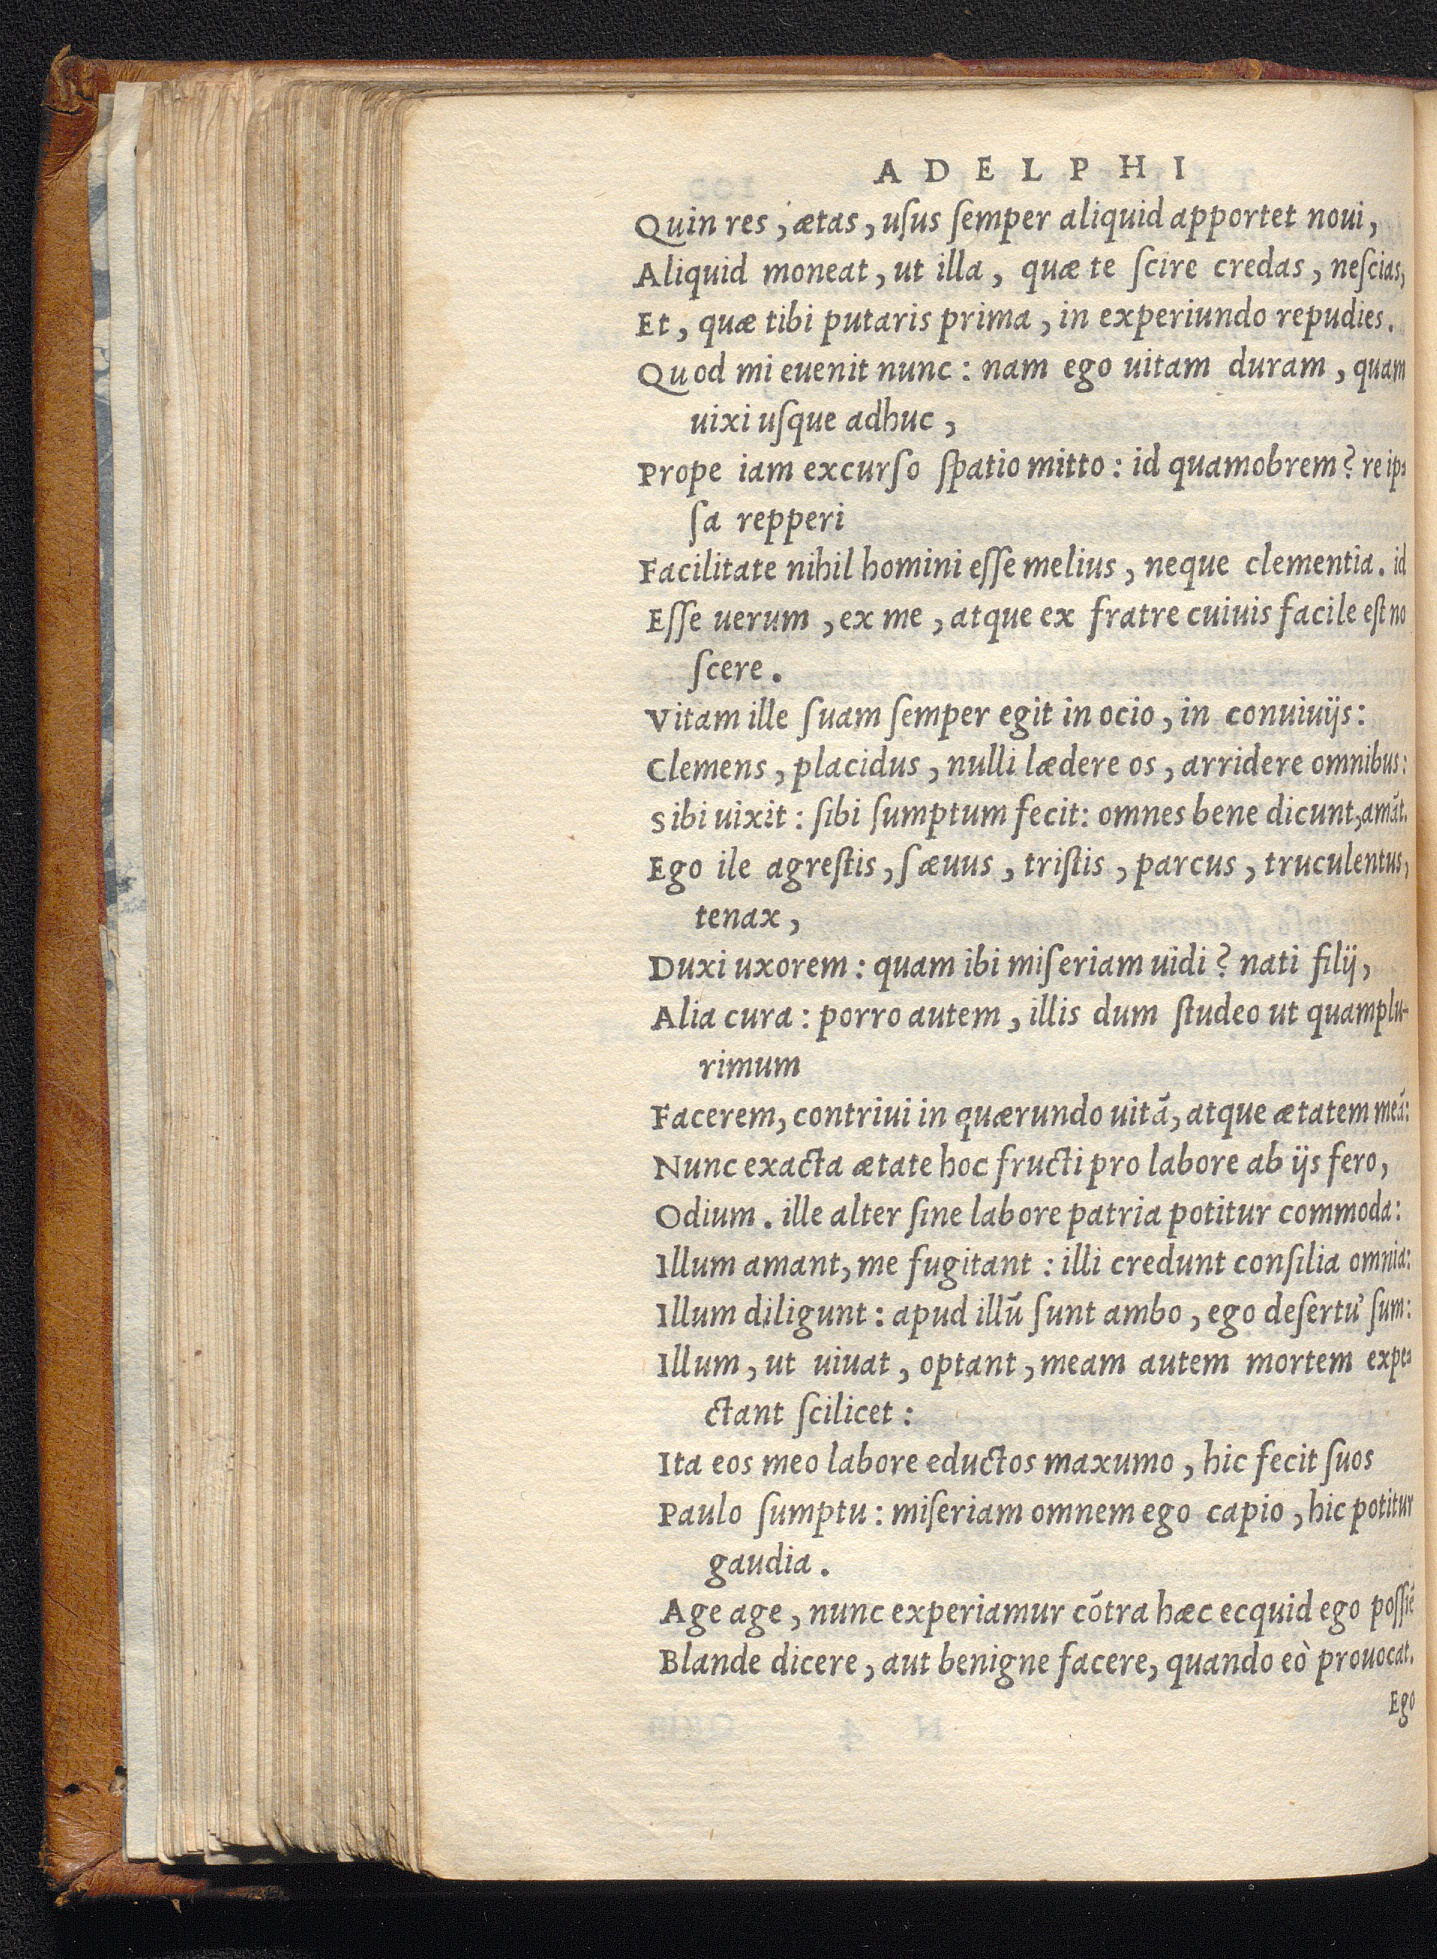 ADELPHI
Quin res, ætas, uſus ſemper aliquid apportet noui,
Aliquid moneat, ut illa, quæ te ſcire credas, neſcias,
Et, quæ tibi putaris prima, in experiundo repudies.
Quod mi euenit nunc: nam ego uitam duram, quam
uixi uſque adhuc,
Prope iam excurſo ſpatio mitto: id quamobrem? re ip-
ſa repperi
Facilitate nihil homini eſſe melius, neque clementia. id
Eſſe uerum, ex me, atque ex fratre cuiuis facile eſt no
ſcere.
Vitam ille ſuam ſemper egit in ocio, in conuiuijs:
Clemens, placidus, nulli lædere os, arridere omnibus:
Sibi uixit: ſibi ſumptum fecit: omnes bene dicunt, amāt.
Ego ile agreſtis, ſæuus, triſtis, parcus, truculentus,
tenax,
Duxi uxorem: quam ibi miſeriam uidi? nati filij,
Alia cura: porro autem, illis dum ſtudeo ut quamplu-
rimum
Facerem, contriui in quærundo uitā, atque ætatem meā:
Nunc exacta ætate hoc fructi pro labore ab ijs fero,
Odium. ille alter ſine labore patria potitur commoda:
Illum amant, me fugitant: illi credunt conſilia omnia:
Illum diligunt: apud illū ſunt ambo, ego deſertu' ſum:
Illum, ut uiuat, optant, meam autem mortem expe-
ctant ſcilicet:
Ita eos meo labore eductos maxumo, hic fecit ſuos
Paulo ſumptu: miſeriam omnem ego capio, hic potitur
gaudia.
Age age, nunc experiamur cōtra hæc ecquid ego poſſiē
Blande dicere, aut benigne facere, quando eò prouocat.
Ego